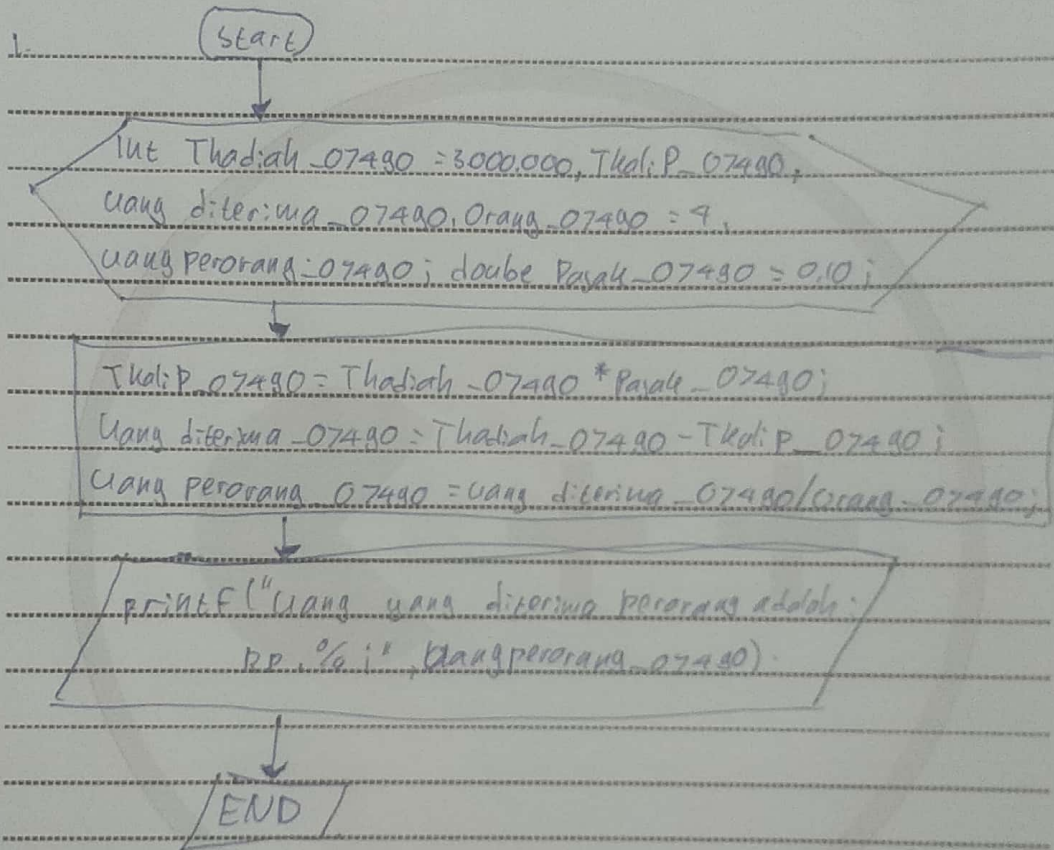 1.
Start
Int Thadiah_07490 = 3.000.000, TkaliP_07490,
Uang diterima_07490, Orang_07490 = 4,
uang perorang_07490; doube Pajak_07490 = 0.10;
TkaliP_07490 = Thadiah_07490 * Pajak_07490;
Uang diterima_07490 = Thadiah_07490 - TkaliP_07490;
Uang perorang_07490 = uang diterima_07490/Orang_07490;
printf("Uang yang diterima perorang adalah:
RP. %i", Uangperorang_07490).
END